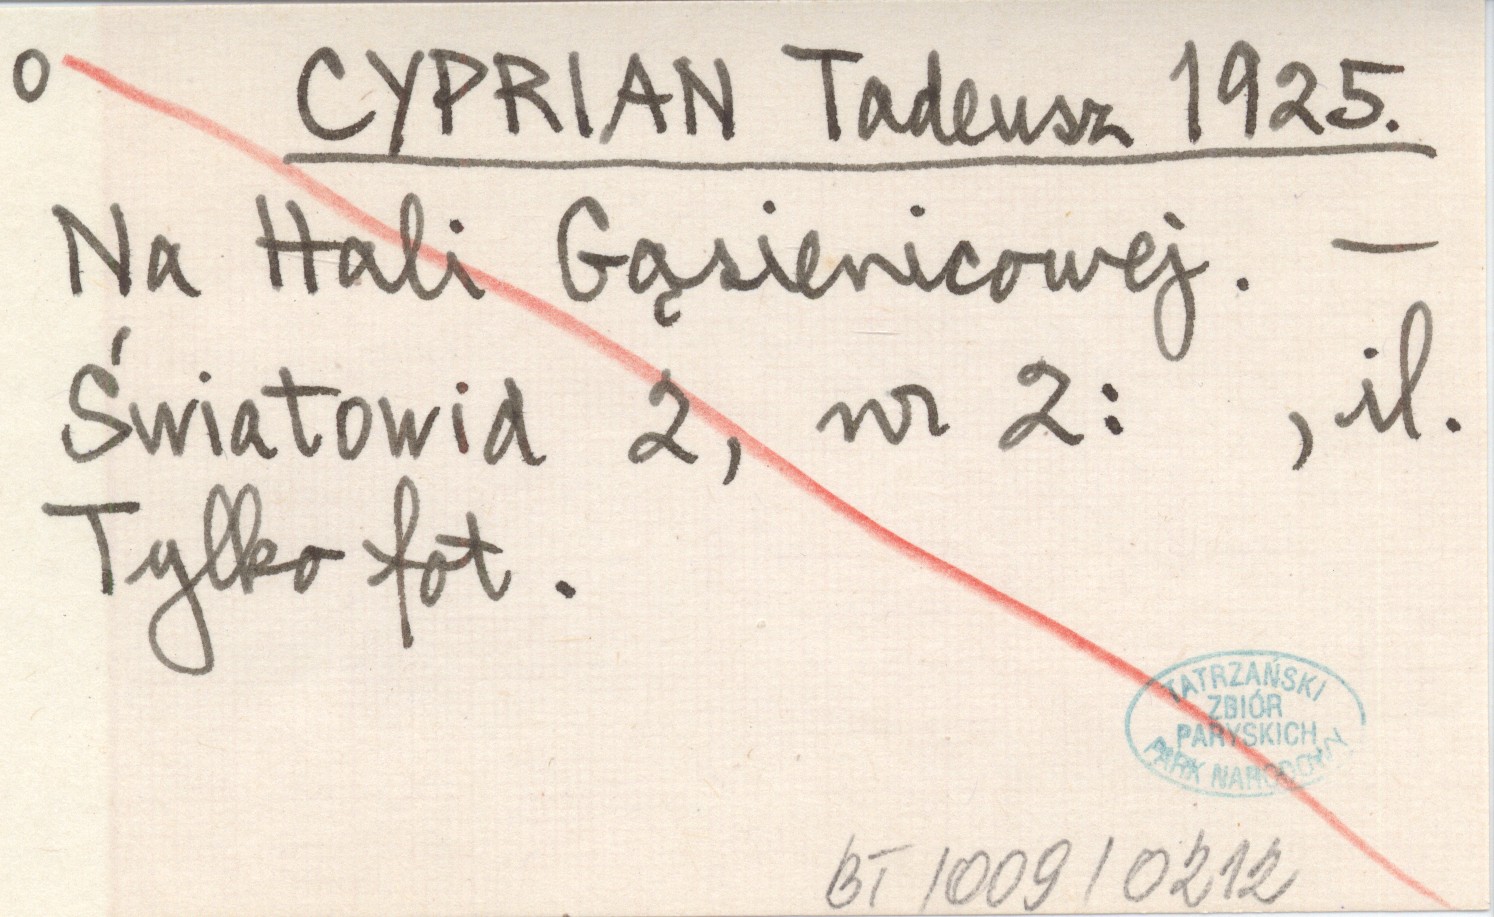 o CYPRIAN Tadeusz 1925.
Na Hali Gąsienicowej. —
Światowid 2, nr 2: , il.
Tylko fot.
TATRZAŃSKI
ZBIÓR
PARYSKICH
PARK NARODOWY
BT / 009 / 0212